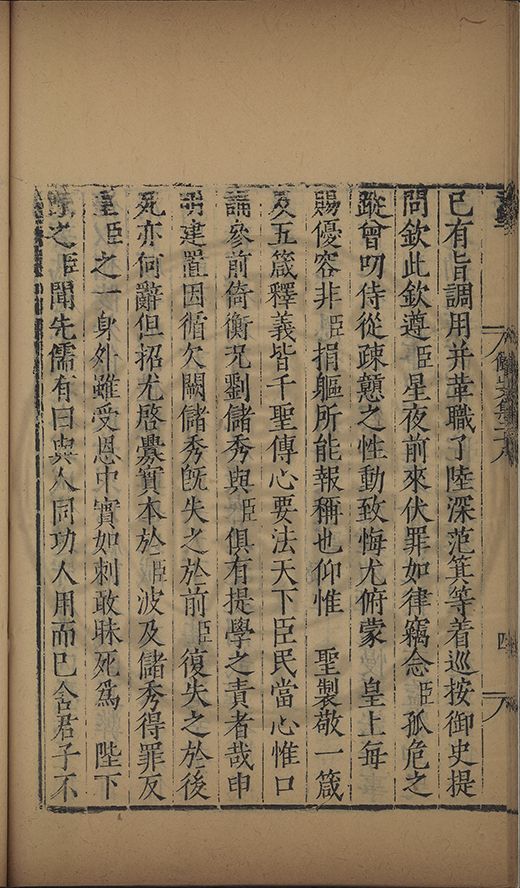 已有旨調用并革職了陸深范箕等着巡按御史提
問欽此欽遵臣星夜前來伏罪如律竊念臣孤危之
蹤曾叨侍從疎戇之性動致悔尤俯蒙 皇上每
賜優容非臣捐軀所能報稱也仰惟 聖製敬一箴
及五箴釋義皆千聖傳心要法天下臣民當心惟口
誦參前倚衡况劉儲秀與臣俱有提學之責者哉申
明建置因循欠闕儲秀旣失之於前臣復失之於後
死亦何辭但招尤啓釁實本於臣波及儲秀得罪反
重臣之一身外雖受恩中實如刺敢昧死爲 陛下
之臣聞先儒有曰與人同功人用而已舍君子不
四